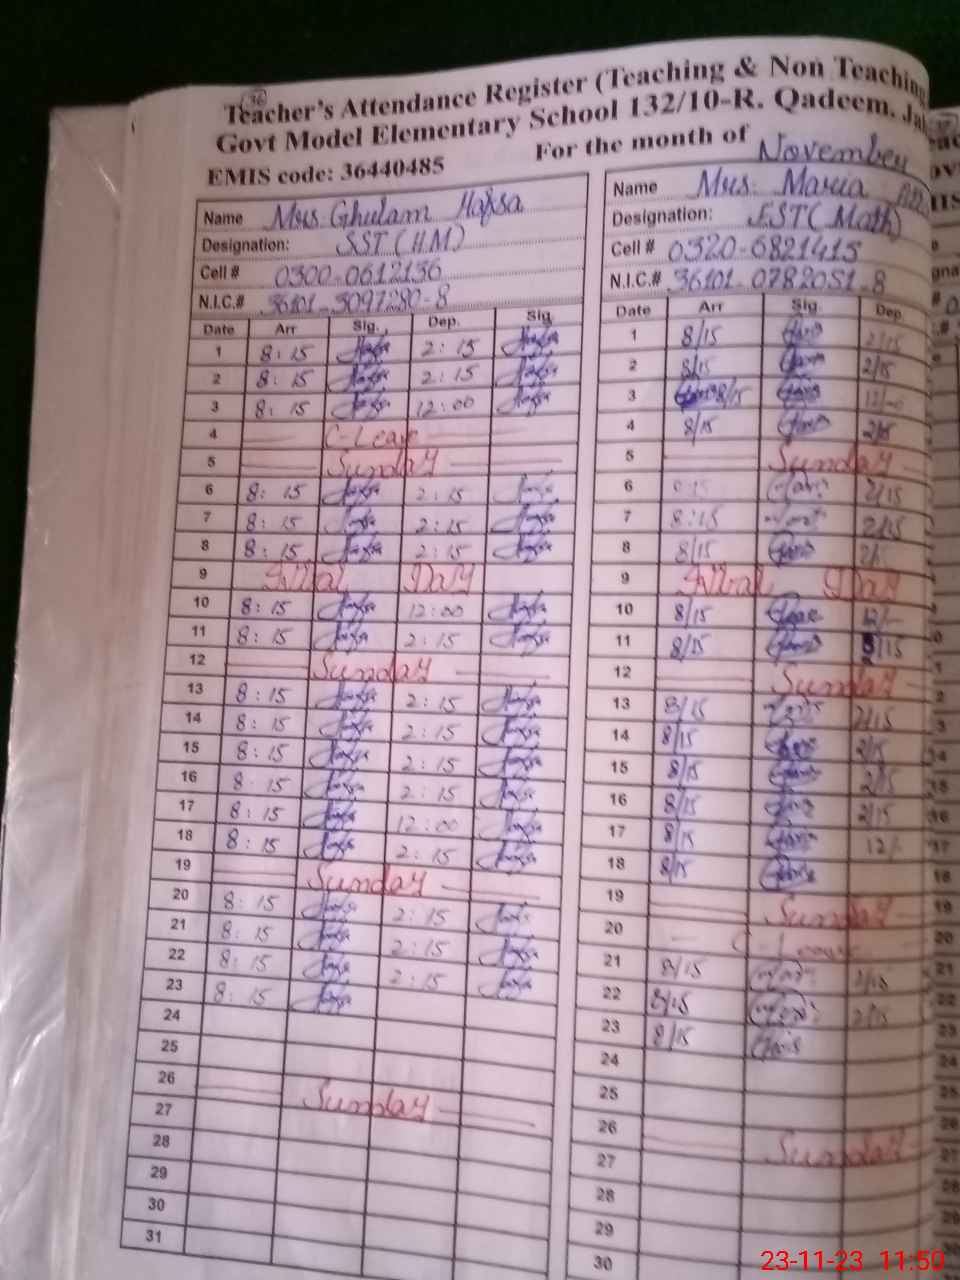 36
Teacher's Attendance Register (Teaching & Non Teaching
Govt Model Elementary School 132/10-R. Qadeem.
EMIS code: 36440485 For the month of November
Name Mrs. Ghulam Hafsa
Designation: SST (H.M)
Cell # 0300-0612136
N.I.C.# 36101-3097280-8
Date Arr Sig. Dep. Sig
1 8:15 2:15
2 8:15 2:15
3 8:15 12:00
4 C-Leave
5 Sunday
6 8:15 2:15
7 8:15 2:15
8 8:15 2:15
9 Iqbal Day
10 8:15 12:00
11 8:15 2:15
12 Sunday
13 8:15 2:15
14 8:15 2:15
15 8:15 2:15
16 8:15 2:15
17 8:15 12:00
18 8:15 2:15
19 Sunday
20 8:15 2:15
21 8:15 2:15
22 8:15 2:15
23 8:15
24
25
26 Sunday
27
28
29
30
31
Name Mrs. Maria
Designation: EST (Math)
Cell # 0320-6821415
N.I.C.# 36101-0782051-8
Date Arr Sig. Dep
1 8/15 2/15
2 8/15 2/15
3 8/15 12/-
4 8/15 2/15
5 Sunday
6 8:15 2/15
7 8:15 2/15
8 8/15
9 Iqbal Day
10 8/15 12/-
11 8/15 /15
12 Sunday
13 8/15 2/15
14 8/15 2/15
15 8/15 2/15
16 8/15 2/15
17 8/15 12/-
18 8/15
19 Sunday
20 C-Leave
21 8/15 2/15
22 8/15 2/15
23 8/15
24
25
26 Sunday
27
28
29
30
23-11-23 11:50